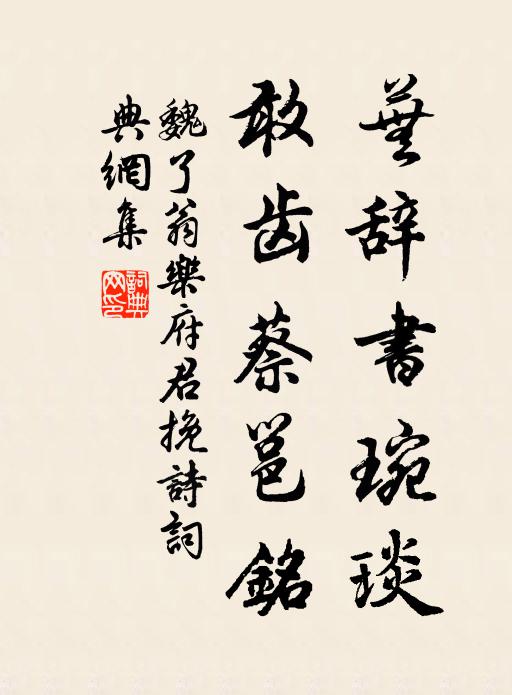 蕪辞書琬琰
敢齿蔡邕銘
魏了翁樂府君挽詩詞
典網集
詞典網印